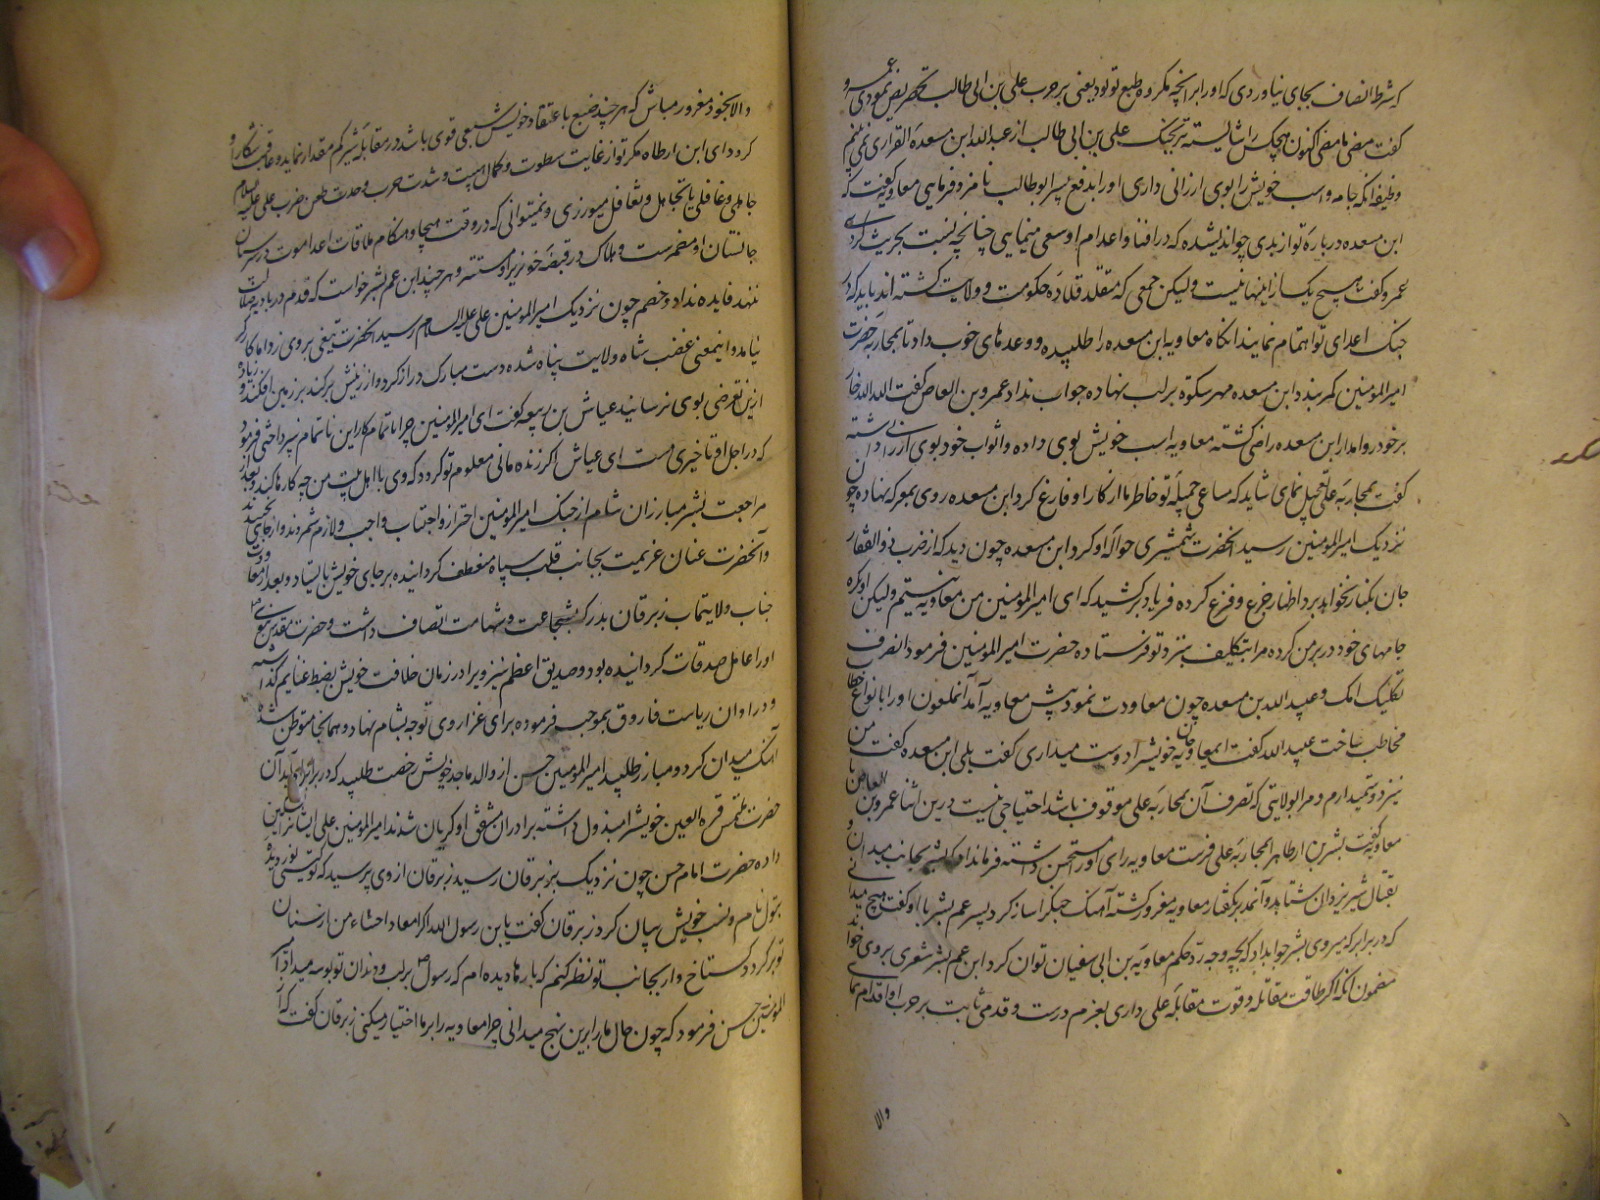 که شرط انصاف بجای نیاوردی که او را برانچه مکروه طبع تو بود یعنی بر حرب علی بن ابی طالب تحریص نمودی عمرو
گفت مضی ما مضی اکنون هیچکس شایسته تر بجنک علی بن ابی طالب از عبدالله ابن مسعدة الفزاری نمی بینم
وظیفه آنکه جامه و اسب خویش را بوی ارزانی داری و او را بدفع پسر ابوطالب نامزد فرمایی معاویه گفت که
ابن مسعده درباره تو از بدی چه اندیشیده که در افنا و اعدام او سعی مینمایی چنانچه نسبت بحریث کردی
عمرو گفت هیچ یک از اینها نیست ولیکن جمعی که مقلد قلاده حکومت و ولایت کشته اند باید که در
جنک اعدای تو اهتمام نمایند انکاه معاویه ابن مسعده را طلبیده و وعدهای خوب داد تا بمحاربه حضرت
امیرالمومنین کمر بندد ابن مسعده مهر سکوت بر لب نهاده جواب نداد عمرو بن العاص گفت الله الله
برخود روا مدار ابن مسعده راضی کشته معاویه اسب خویش بوی داده و اثواب خود بوی ارزانی داشته
گفت بمحاربه علی تعجیل نمای شاید که مساعی جمیله تو خاطر ما از کار او فارغ کرد ابن مسعده روی بمعرکه نهاده چون
نزدیک امیرالمومنین رسید آنحضرت شمشیری حواله او کرد ابن مسعده چون دید که از ضرب ذوالفقار
جان بکنار نخواهد برد اظهار جزع و فزع کرده فریاد برکشید که ای امیرالمومنین من معاویه نیستم ولیکن او
جامهای خود در بر من کرده مرا بتکلیف بنزد تو فرستاده حضرت امیرالمومنین فرمود انصرف
ثکلتک امک و عبدالله بن مسعده چون معاودت نمود پیش معاویه آمد آنملعون او را بانواع خطاب
مخاطب ساخت عبدالله گفت ای معاویه جان خویش را دوست میداری گفت بلی ابن مسعده گفت من
نیز دوستمیدارم و مرا بولایتی که تصرف آن بمحاربه علی موقوف باشد احتیاجی نیست درین اثنا عمرو بن العاص با
معاویه گفت بشر بن ارطاه را بمحاربه علی فرست معاویه رای او را مستحسن داشته فرمان داد که بشر بجانب میدان
بقتال شیر یزدان شتابد و آنمدبر بکفتار معاویه مغرور کشته آهنک جنک را ساز کرد پسر عم بشر با او گفت هیچ میدانی
که در برابر که میروی بشر جواب داد که بچه وجه رد حکم معاویه بن ابی سفیان توان کرد ابن عم بشر شعری بروی خواند
مضمون آنکه اگر طاقت مقاتله و قوت مقابله علی داری بعزم درست و قدمی ثابت بر حرب او اقدام نمای
والا
والا بخود مغرور مباش که هر چند ضبع باعتقاد خویش سبعی قوی باشد در مقابله شیر کم مقدار نماید و عاقبت شکار او
کردد ای ابن ارطاه مگر تو از غایت سطوت و کمال هیبت و شدت حرب و حدت طعن و ضرب علی علیه السلام
جاهلی و غافلی یا تجاهل و تغافل میورزی و نمیتوانی که در وقت هیجا و هنکام ملاقات اعدا موت در سر سنان
جانستان او مضمرست و هلاک در قبضه خونریز او مستتر و هر چند ابن عم بشر خواست که قدم در بادیه ضلالت
ننهد فایده نداد و خصم چون نزدیک امیرالمومنین علی علیه السلام رسید آنحضرت تیغی بروی زد اما کارگر
نیامد و اینمعنی غضب شاه ولایت پناه شده دست مبارک دراز کرد و از زینش برکند بر زمین افکند و زیاده
ازین تعرضی بوی نرسانید عیاش بن ربیعه گفت ای امیرالمومنین چرا باتمام کار این ناتمام نپرداختی فرمود
که در اجل او تاخیری هست ای عیاش اگر زنده مانی معلوم تو کردد که وی با اهل بیت من چه کارها کند و بعد از
مراجعت بشر مبارزان شام از جنک امیرالمومنین احتراز و اجتناب واجب و لازم شمردند و از جای نجنبیدند
و آنحضرت عنان عزیمت بجانب قلب سپاه منعطف کردانیده بر جای خویش بایستاد و بعد از معاودت
جناب ولایتماب زبرقان بدر که بشجاعت و شهامت اتصاف داشت و حضرت مقدس نبوی
او را عامل صدقات کردانیده بود و صدیق اعظم نیز ویرا در زمان خلافت خویش بضبط غنایم گذاشته
و در اوان ریاست فاروق بموجب فرموده برای غزا روی توجه بشام نهاد و همانجا متوطن شده
آهنک میدان کرد و مبارز طلبید امیرالمومنین حسن از والد ماجد خویش رخصت طلبید که در برابر او آید آن
حضرت ملتمس قرة العین خویش را مبذول داشته برادران مشفق او کریان شدند امیرالمومنین علی ایشانرا تسکین
داده حضرت امام حسن چون نزدیک بزبرقان رسید زبرقان از وی پرسید که تو کیستی نور دیده
بتول نام و نسب خویش بیان کرد زبرقان گفت یابن رسول الله اگر امعا و احشاء من از سنان
تو پر کردد کستاخ وار بجانب تو نظر نکنم که بارها دیده ام که رسول بر لب و دندان تو بوسه میداد امیر
المومنین حسن فرمود که چون حال ما را برین نهج میدانی چرا معاویه را بر ما اختیار میکنی زبرقان گفت که